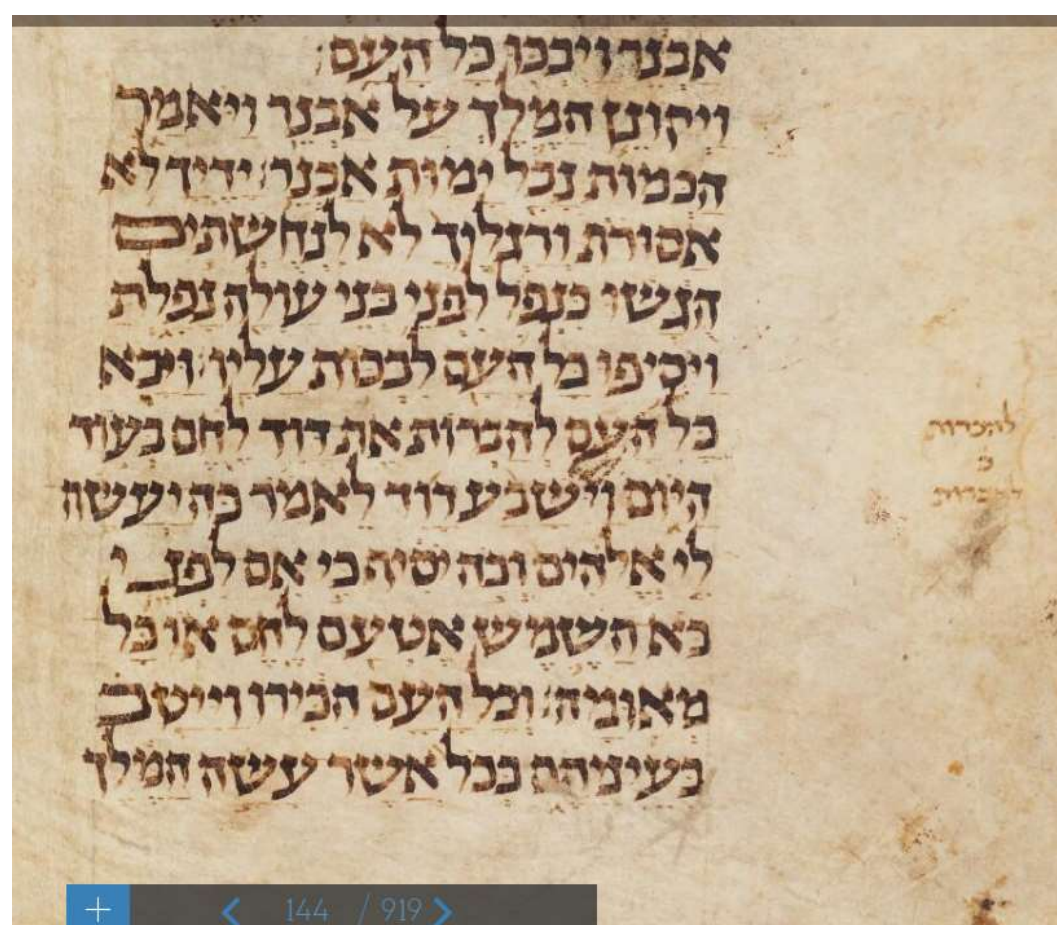 אבנר ויבכו כל העם:
ויקונן המלך על אבנר ויאמר
הכמות נבל ימות אבנר: ידיך לא
אסורת ורגליך לא לנחשתים
הגשו כנפל לפני בני עולה נפלת
ויסיפו כל העם לבכות עליו: ויבא
כל העם להברות את דוד לחם בעוד
היום וישבע דוד לאמר כה יעשה
לי אלהים וכה יסיף כי אם לפני
בא השמש אטעם לחם או כל
מאומה: וכל העם הכירו וייטב
בעיניהם ככל אשר עשה המלך
להכרות
כ
144 / 919